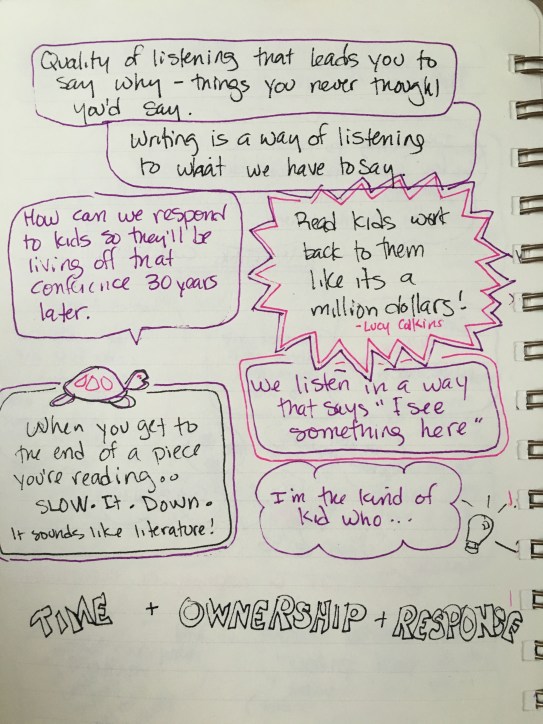 Quality of listening that leads you to
say why - things you never thought
you'd say.
Writing is a way of listening
to whaat we have to say
How can we respond
to kids so they'll be
living off that
conferince 30 years
later.
Read kids work
back to them
like its a
million dollars!
-Lucy Calkins
We listen in a way
that says "I see
something here"
When you get to
the end of a piece
you're reading...
SLOW. It. Down.
It sounds like literature!
I'm the kind of
kid who...
TIME + OWNERSHIP + RESPONSE